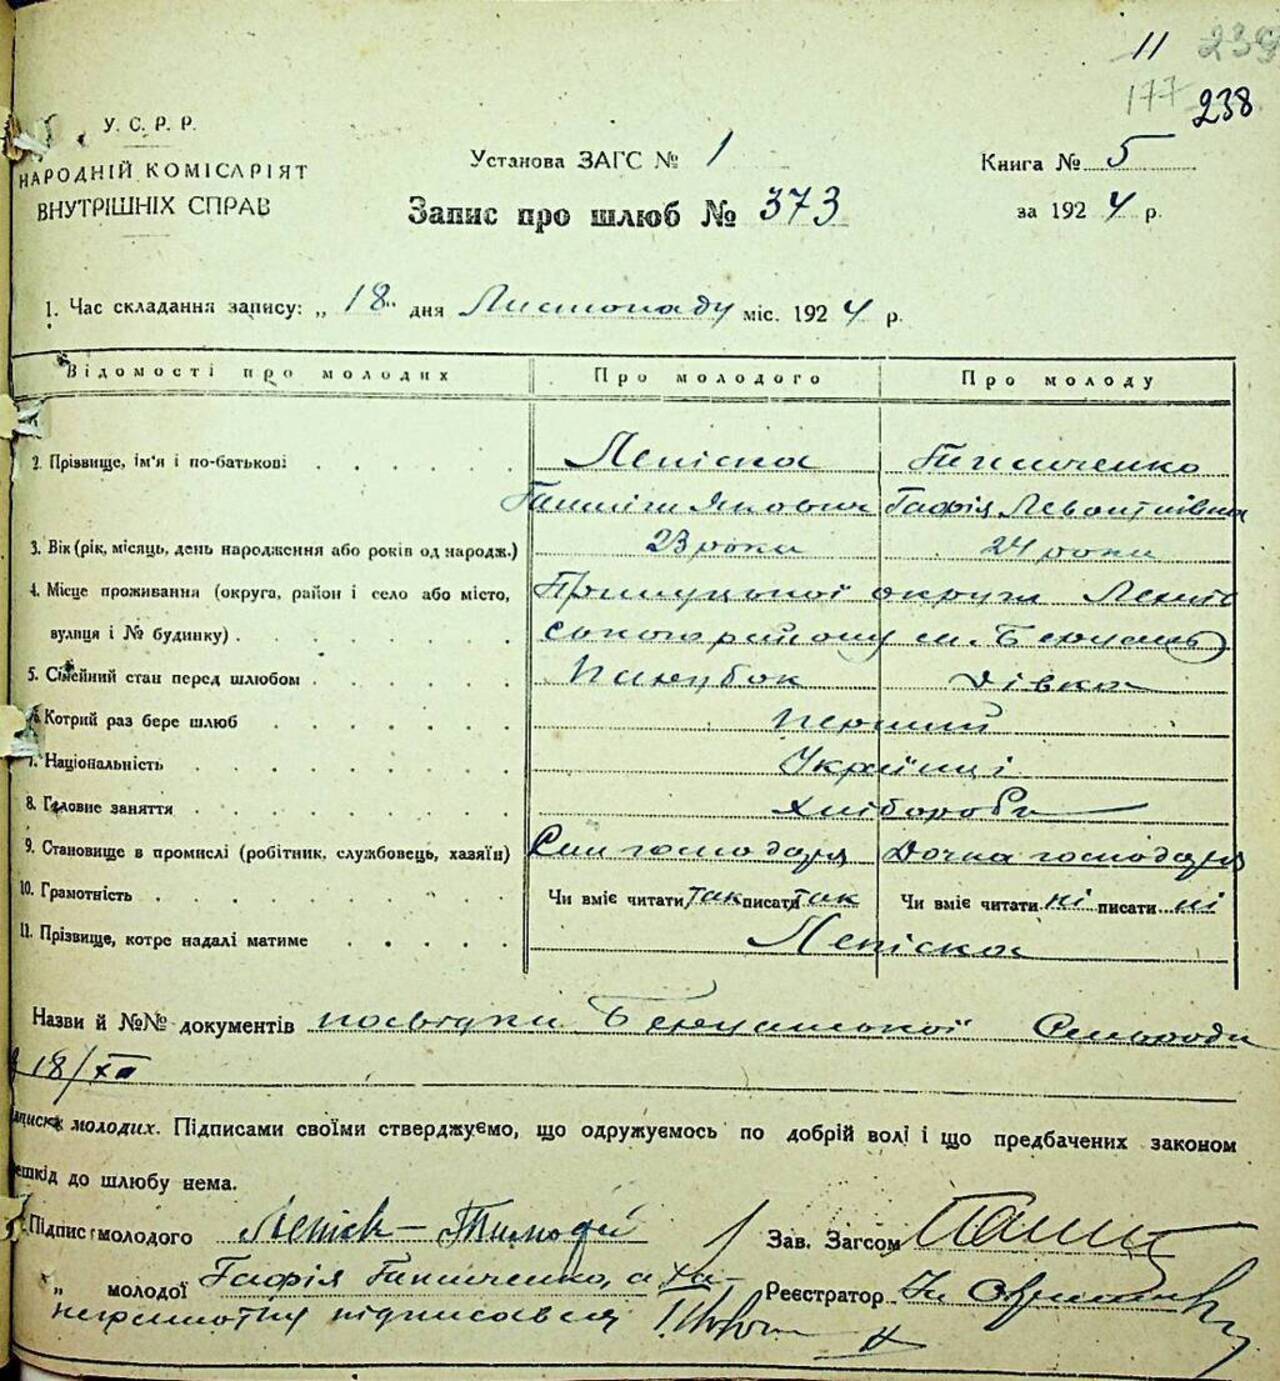 11 239
177 238
У. С. Р. Р.
НАРОДНІЙ КОМІСАРІЯТ
ВНУТРІШНІХ СПРАВ
Установа ЗАГС № 1
Книга № 5
Запис про шлюб № 373
за 1924 р.
1. Час складання запису: „18" дня Листопаду міс. 1924 р.
Відомості про молодих Про молодого Про молоду
2. Прізвище, ім'я і по-батькові Лепіска
Якович Гафія
3. Вік (рік, місяць, день народження або років од народж.) 23 роки 24 роки
4. Місце проживання (округа, район і село або місто, Прилуцької округи
вулиця і № будинку) району
5. Сімейний стан перед шлюбом Парубок дівка
6. Котрий раз бере шлюб перший
7. Національність Українці
8. Головне заняття хлібороби
9. Становище в промислі (робітник, службовець, хазяїн) Син господаря Дочка господаря
10. Грамотність Чи вміє читати так писати так Чи вміє читати ні писати ні
11. Прізвище, котре надалі матиме Лепіска
Назви й №№ документів посвідки Сільради
18/XI
молодих. Підписами своїми стверджуємо, що одружуємось по добрій волі і що предбачених законом
ешкід до шлюбу нема.
Підпис молодого Зав. Загсом
„ молодої Гафія Реєстратор
неграмотну підписався